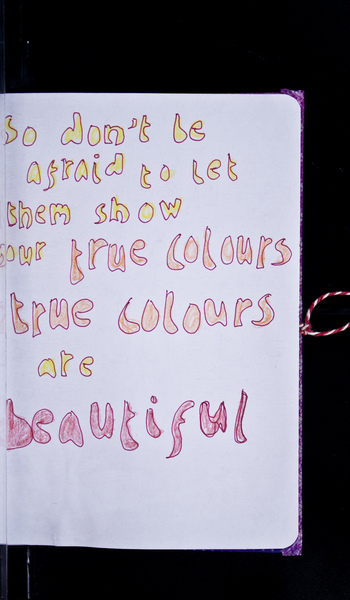 So don't be
afraid to let
them show
your true colours
true colours
are
beautiful